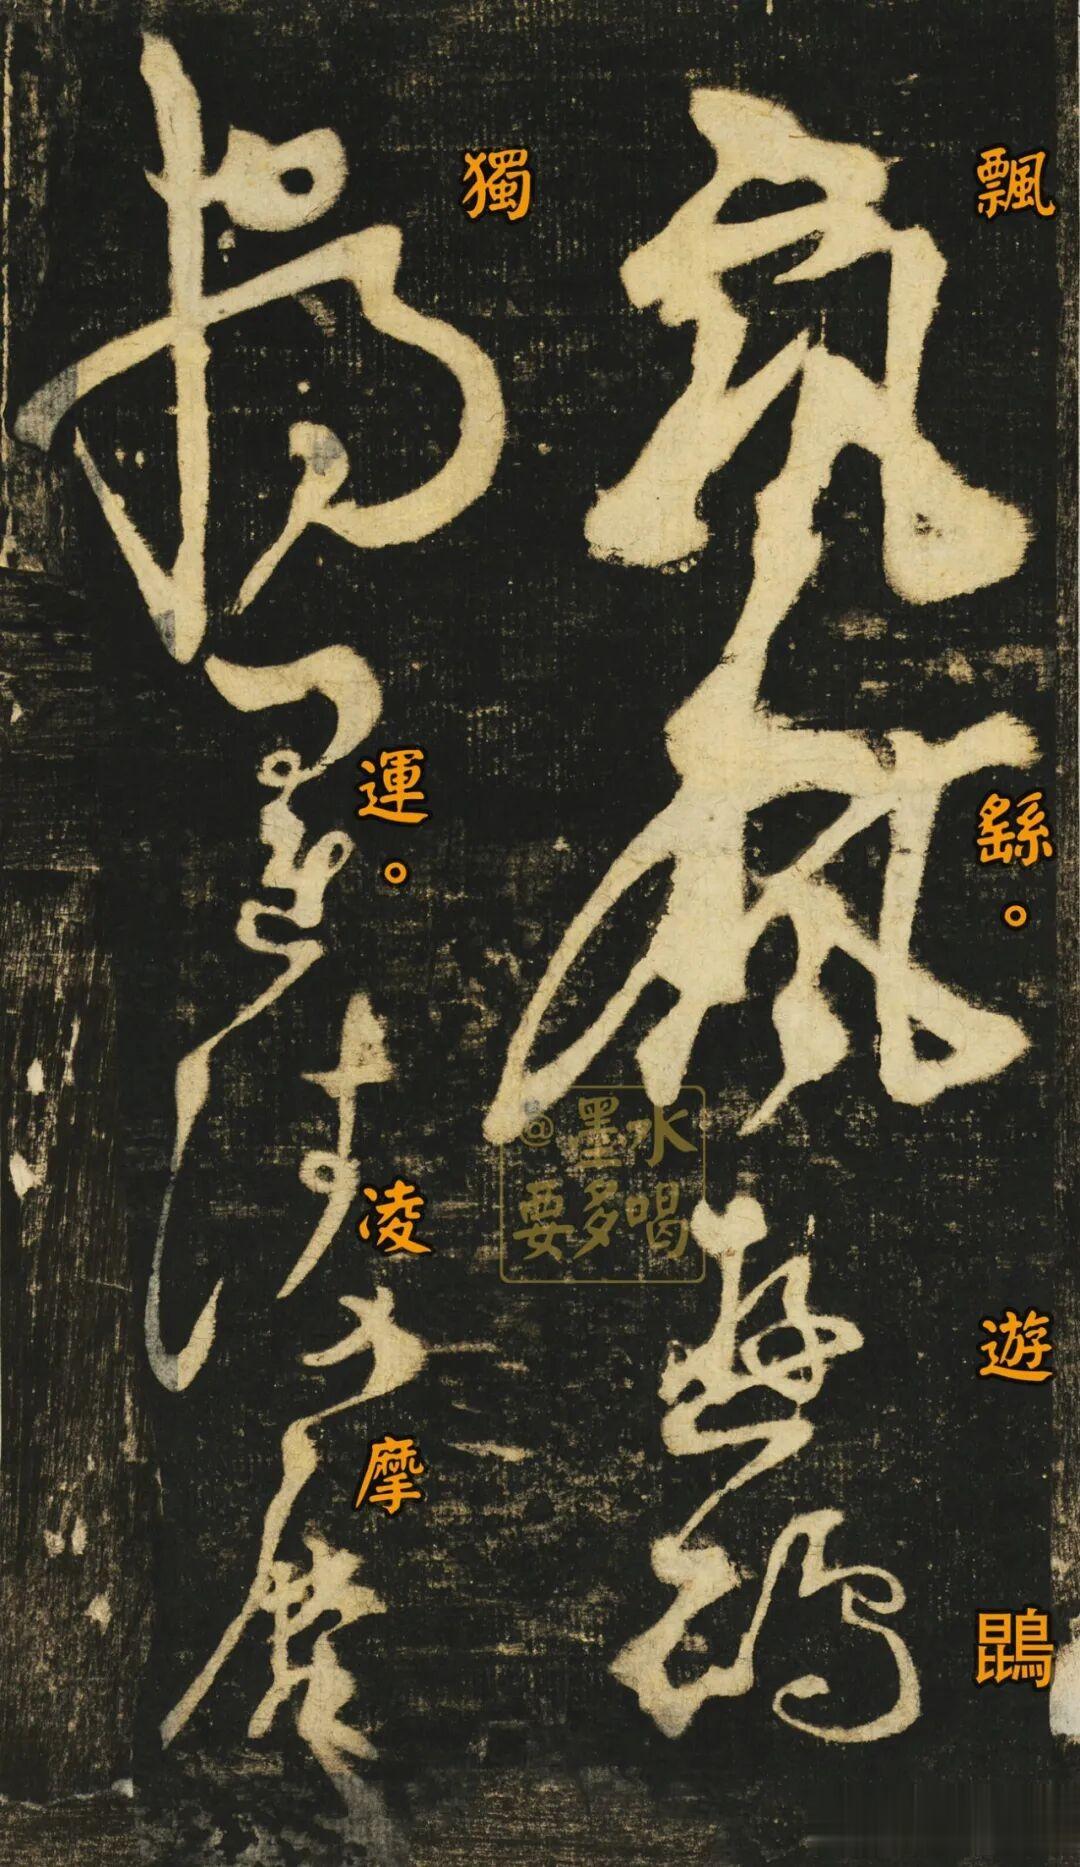 飄繇。遊鵾
獨運。凌摩
@墨水
要多喝